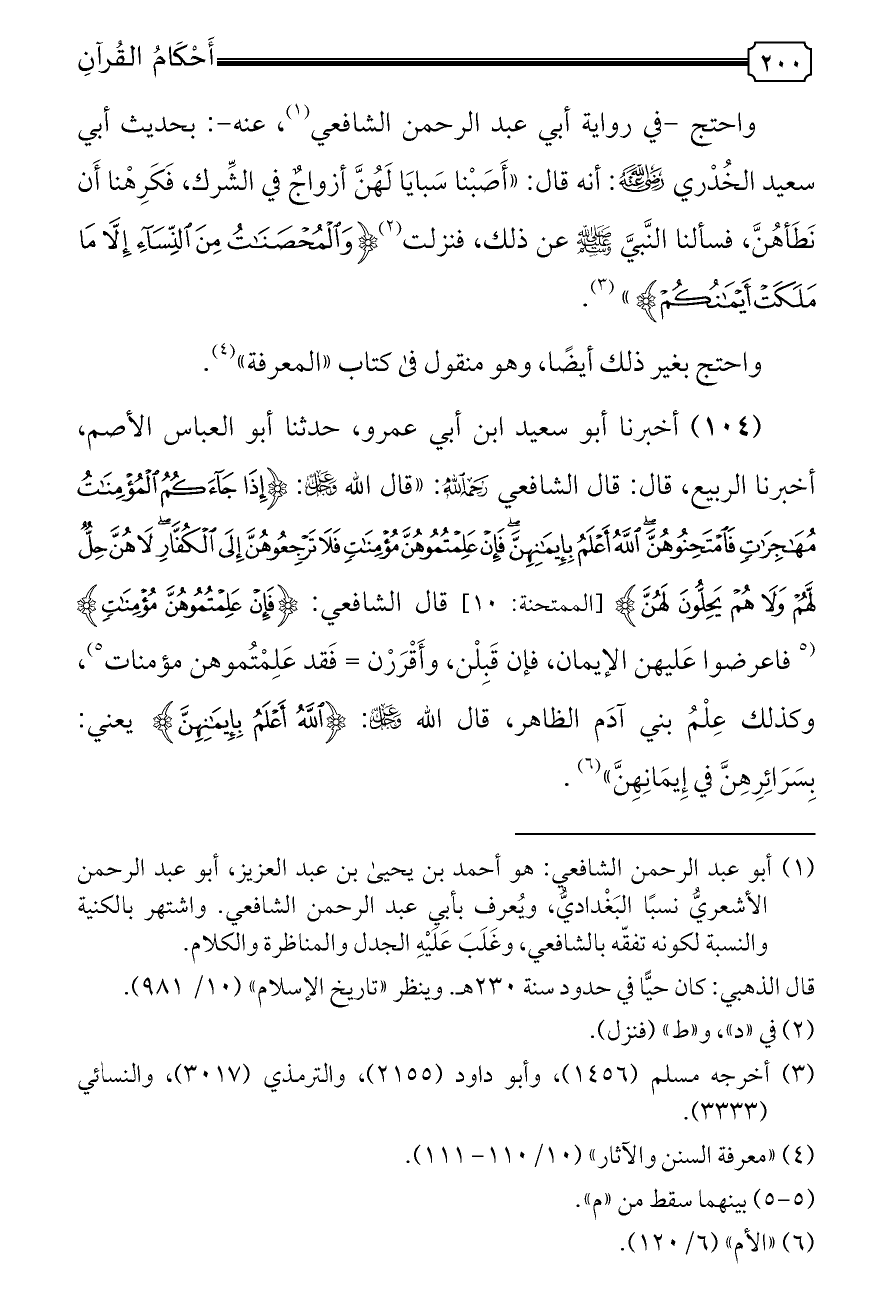 ٢٠٠ أَحْكَامُ القُرآنِ
واحتج -في رواية أبي عبد الرحمن الشافعي(١)، عنه-: بحديث أبي
سعيد الخُدْري رَضِيَ اللَّهُ عَنْهُ: أنه قال: «أَصَبْنا سَبايَا لَهُنَّ أزواجٌ في الشِّرك، فَكَرِهْنا أَن
نَطَأهُنَّ، فسألنا النَّبيَّ ﷺ عن ذلك، فنزلت(٢)﴿وَٱلْمُحْصَنَٰتُ مِنَ ٱلنِّسَآءِ إِلَّا مَا
مَلَكَتْ أَيْمَٰنُكُمْ﴾ »(٣).
واحتج بغير ذلك أيضًا، وهو منقول فى كتاب «المعرفة»(٤).
(١٠٤) أخبرنا أبو سعيد ابن أبي عمرو، حدثنا أبو العباس الأصم،
أخبرنا الربيع، قال: قال الشافعي رَحِمَهُ اللَّهُ: «قال الله عَزَّ وَجَلَّ: ﴿إِذَا جَآءَكُمُ ٱلْمُؤْمِنَٰتُ
مُهَٰجِرَٰتٍ فَٱمْتَحِنُوهُنَّ ۖ ٱللَّهُ أَعْلَمُ بِإِيمَٰنِهِنَّ ۖ فَإِنْ عَلِمْتُمُوهُنَّ مُؤْمِنَٰتٍ فَلَا تَرْجِعُوهُنَّ إِلَى ٱلْكُفَّارِ ۖ لَا هُنَّ حِلٌّ
لَّهُمْ وَلَا هُمْ يَحِلُّونَ لَهُنَّ﴾ [الممتحنة: ١٠] قال الشافعي: ﴿فَإِنْ عَلِمْتُمُوهُنَّ مُؤْمِنَٰتٍ﴾
(٥ فاعرضوا عَليهن الإيمان، فإن قَبِلْن، وأَقْرَرْن = فَقد عَلِمْتُموهن مؤمنات٥)،
وكذلك عِلْمُ بني آدَم الظاهر، قال الله عَزَّ وَجَلَّ: ﴿ٱللَّهُ أَعْلَمُ بِإِيمَٰنِهِنَّ﴾ يعني:
بِسَرَائِرِهِنَّ في إِيمَانِهِنَّ»(٦).
(١) أبو عبد الرحمن الشافعي: هو أحمد بن يحيىٰ بن عبد العزيز، أبو عبد الرحمن
الأشعريُّ نسبًا البَغْداديُّ، ويُعرف بأبي عبد الرحمن الشافعي. واشتهر بالكنية
والنسبة لكونه تفقّه بالشافعي، وغَلَبَ عَلَيْهِ الجدل والمناظرة والكلام.
قال الذهبي: كان حيًّا في حدود سنة ٢٣٠هـ. وينظر «تاريخ الإسلام» (١٠/ ٩٨١).
(٢) في «د»، و«ط» (فنزل).
(٣) أخرجه مسلم (١٤٥٦)، وأبو داود (٢١٥٥)، والترمذي (٣٠١٧)، والنسائي
(٣٣٣٣).
(٤) «معرفة السنن والآثار» (١٠/ ١١٠-١١١).
(٥-٥) بينهما سقط من «م».
(٦) «الأم» (٦/ ١٢٠).